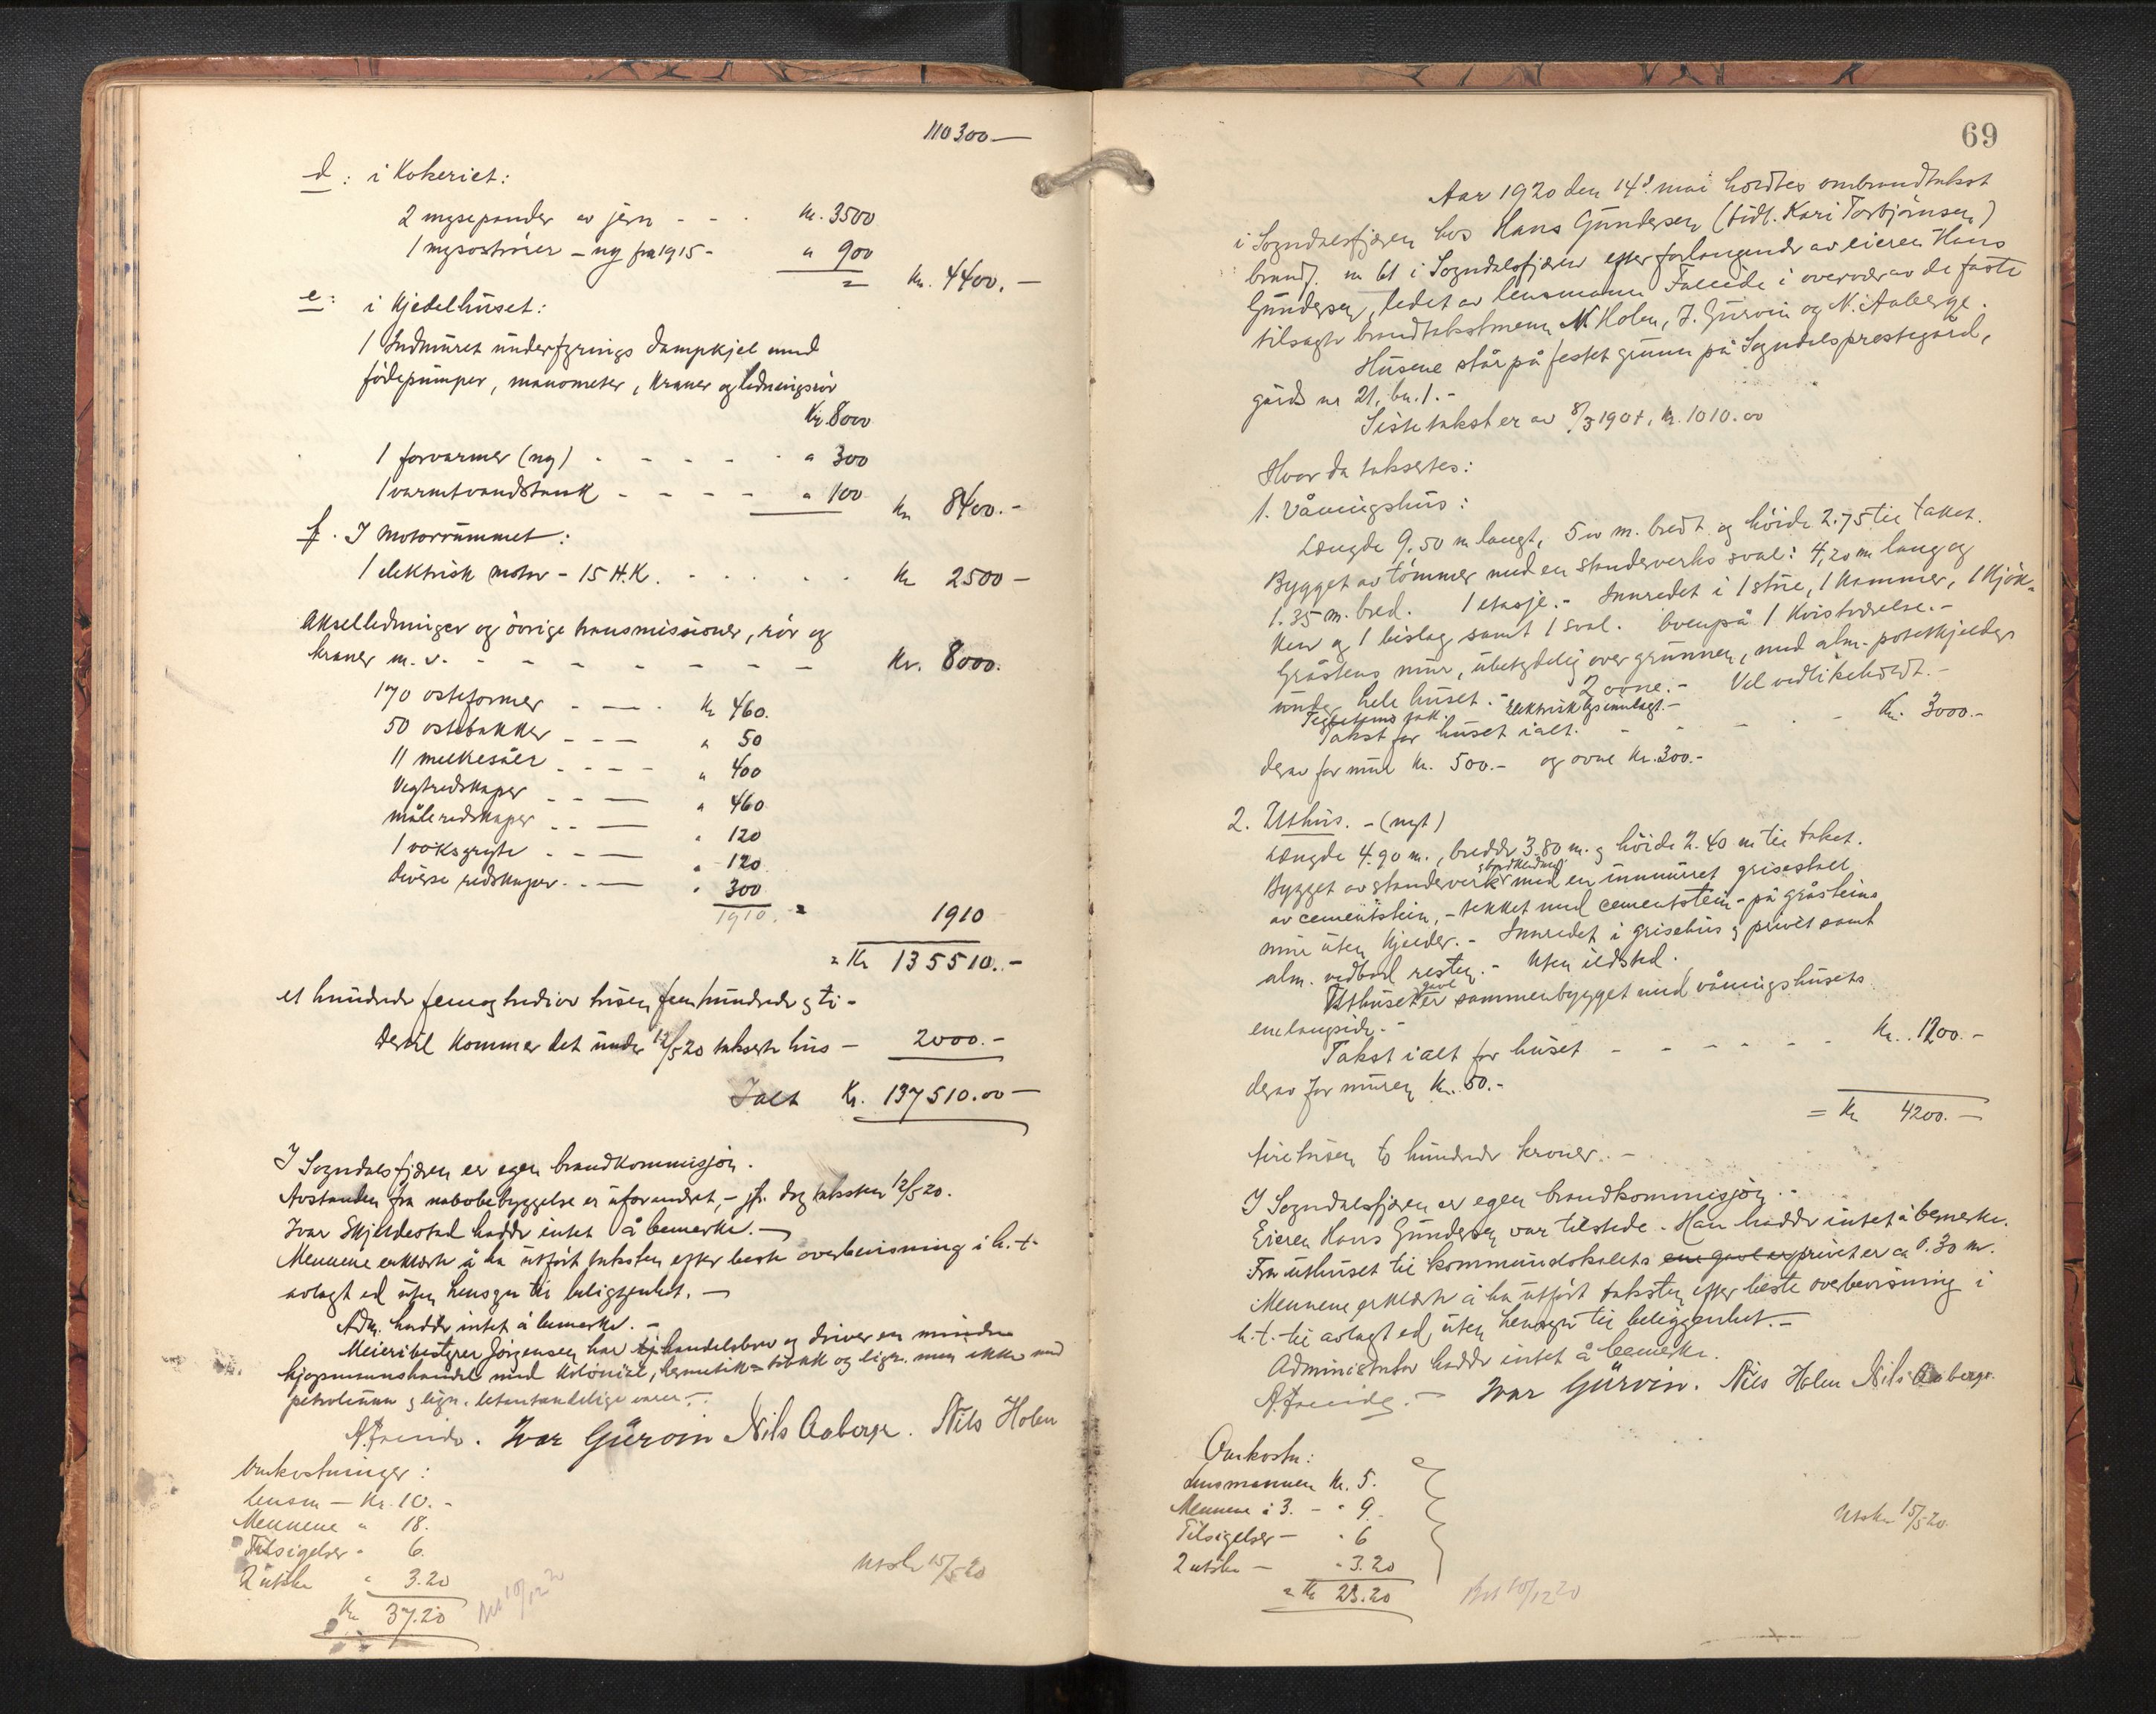 110300 —
d: i Kokeriet:
2 mysepander av jern - - - kr. 3500
1 mysostrører – ny fra 1915 - " 900
= kr. 4400. —
e: i Kjedelhuset:
1 Indmuret underfyrings dampkjel med
fødepumper, manometer, kraner og ledningsrør
Kr. 8000
1 forvarmer (ny) - - - - - " 300
1 varmtvandstank - - - - " 100
kr 8400. -
f. I Motorrummet:
1 elektrisk motor - 15 H.K. - - - - - kr 2500 —
Akselledninger og övrige transmissioner, rör og
kraner m. v. - - - - - - - - Kr. 8000.
170 osteformer - — . kr 460.
50 ostebakker - - — " 50
11 melkesåler - - - — " 400
Vegtredskaper - - — " 460
måleredskaper - - — " 120
1 voksgryte - - — " 120
diverse redskaper - - — " 300
1910. = 1910
= Kr 135510. -
et hundrede femogtredive tusen fem hundrede og ti -
Dertil kommer det under 12/5 20 takserte hus — 2000. -
Ialt Kr. 137510.00 —
I Sogndalsfjæren er egen brandkommisjon.
Avstanden fra nabobebyggelse er uforandret, - jfr. dog taksten 12/5 20.
Ivar Skjeldestad hadde intet å bemerke. —
Mennene erklærte å ha utført taksten efter beste overbevisning i h. t.
avlagt ed uten hensyn til beliggenhet. —
Adm. hadde intet å bemerke. -
Meieribestyrer Jörgensen har handelsbrev og driver en mindre
kjøpmannshandel med kolonial, hermetik- tobakk og lign. men ikke med
petroleum og lign. letantændelige varer. -
A. Faleide. Ivar Gurvin Nils Aaberge. Nils Holen
Omkostninger:
Lensm — Kr. 10. -
Mennene " 18.
Tilsigelser " 6.
2 utskr " 3.20
Kr 37.20
Bet 10/12 20
Utskr 15/5 20
69
Aar 1920 den 14d. mai holdtes ombrandtakst
i Sogndalsfjæren hos Hans Gundersen (tidl. Kari Torbjörnsen)
brandf. nr 61 i Sogndalsfjæren efter forlangende av eieren Hans
Gundersen, ledet av lensmann Faleide i overvær av de faste
tilsagte brandtakstmenn N. Holen, I. Gurvin og N. Aaberge.
Husene står på festet grunn på Sogndals prestegård,
gårds nr 21, bn. 1. -
Siste takst er av 8/3 1907, kr. 1010.00
Hvor da taksertes:
1. Våningshus:
Længde 9,50 m langt, 5 00 m. bredt og höide 2.75 til taket.
Bygget av tömmer med en standerverks sval: 4,20 m lang og
1.35 m. bred. 1 etasje. - Innredet i 1 stue, 1 kammer, 1 kjök-
ken og 1 bislag samt 1 sval. Ovenpå 1 kvistværelse. -
Gråstens mur, ubetydelig over grunnen, med alm. potetkjelder
under hele huset. - 2 ovne. - Vel vedlikeholdt. -
Teglstens tak. Elektrisk lys innlagt. -
Takst for huset ialt. - - - - Kr. 3000. -
derav for mur Kr. 500. - og ovne Kr. 300. -
2. Uthus. - (nyt)
Længde 4.90 m., bredde 3.80 m. og höide 2.40 m til taket.
Bygget av standerverk med en innmuret grisestall
av cementstein, - tekket med cementstein - på gråsteins
mur uten kjelder. - Innredet i grisehus og privet samt
alm. vedbod resten. - Uten ildsted.
Uthuset er sammenbygget med våningshusets
ene langside. -
Takst ialt for huset - - - - - - Kr. 1200. -
derav for muren Kr. 50. -
= Kr 4200. —
fire tusen to hundrede kroner. -
I Sogndalsfjæren er egen brandkommisjon. -
Eieren Hans Gundersen var tilstede. Han hadde intet å bemerke.
Fra uthuset til kommunelokalets ene gavl er privet er ca 0.30 m.
Mennene erklærte å ha utført taksten efter beste overbevisning i
h. t. til avlagt ed, uten hensyn til beliggenhet. -
Administrator hadde intet å bemerke.
A. Faleide. - Ivar Gurvin. Nils Holen Nils Aaberge.
Omkostn:
Lensmannen Kr. 5.
Mennene à 3. - " 9.
Tilsigelser — " 6
2 utskr — " 3.20
= Kr 23.20
Bet 10/12 20
Utskr 15/5 20.